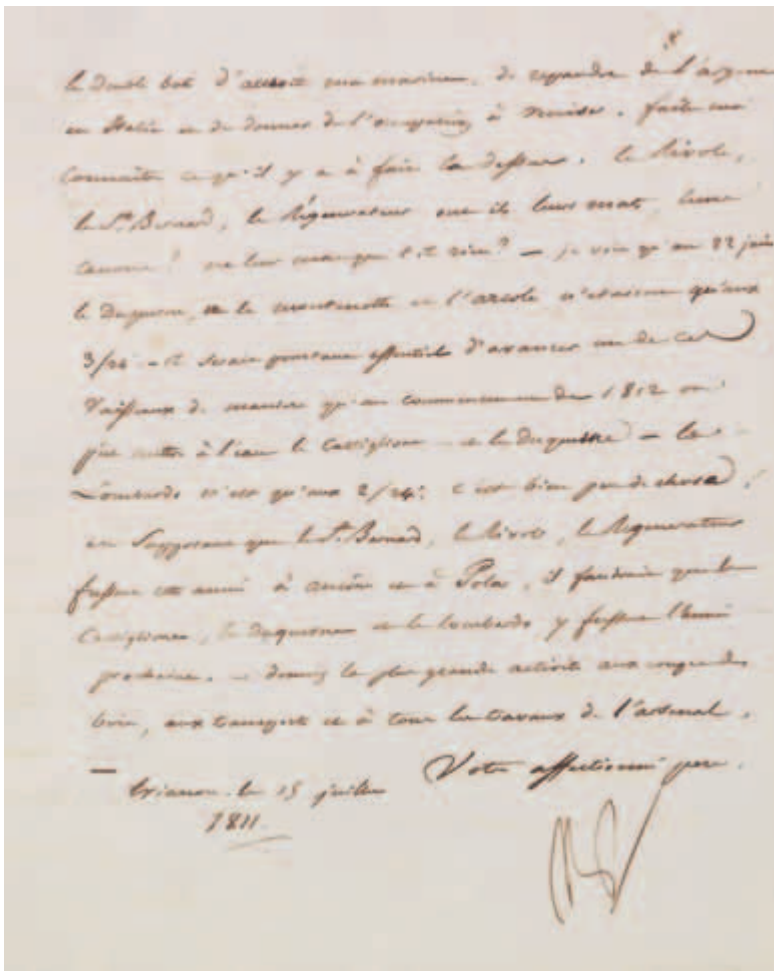 le double but d'accroitre ma marine, de repandre de l'argent
en Italie et de donner de l'occupation à Venise. faites moi
connaitre ce qu'il y a à faire la dessus. le Rivoli,
le St. Bernard, le Régenerateur ont ils leurs mats, leurs
canons? ne leur manque t'il rien? — je vois qu'au 22 juin
le Duquesne, le montenotte et l'arcole n'étaient qu'aux
3/24 — il serait pourtant essentiel d'avancer un de ces
Vaisseaux de maniere qu'au commencement de 1812 on
put mettre à l'eau le Castiglione et le duquesne — le
Lombardo n'est qu'aux 2/24: c'est bien peu de chose,
en Supposant que le St. Bernard, le Rivoli, le Régenerateur
fussent cette année à ancône et à Pola, il faudrait que le
Castiglione, le duquesne et le lombardo y fussent l'année
prochaine. — donnez la plus grande activité aux coupes de
bois, aux transports et à tous les travaux de l'arsenal.
— trianon le 15 juillet
1811.
Votre affectionné pere.